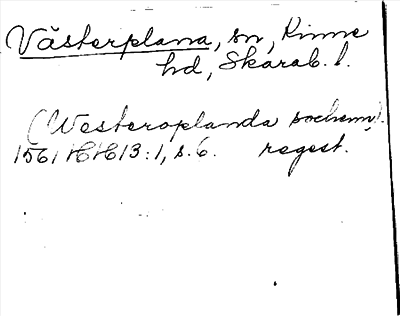 Västerplana, sn, Kinne
hd, Skarab. l.
(Westeroplanda sochenn).
1561 HH 13:1, s. 6. regest.